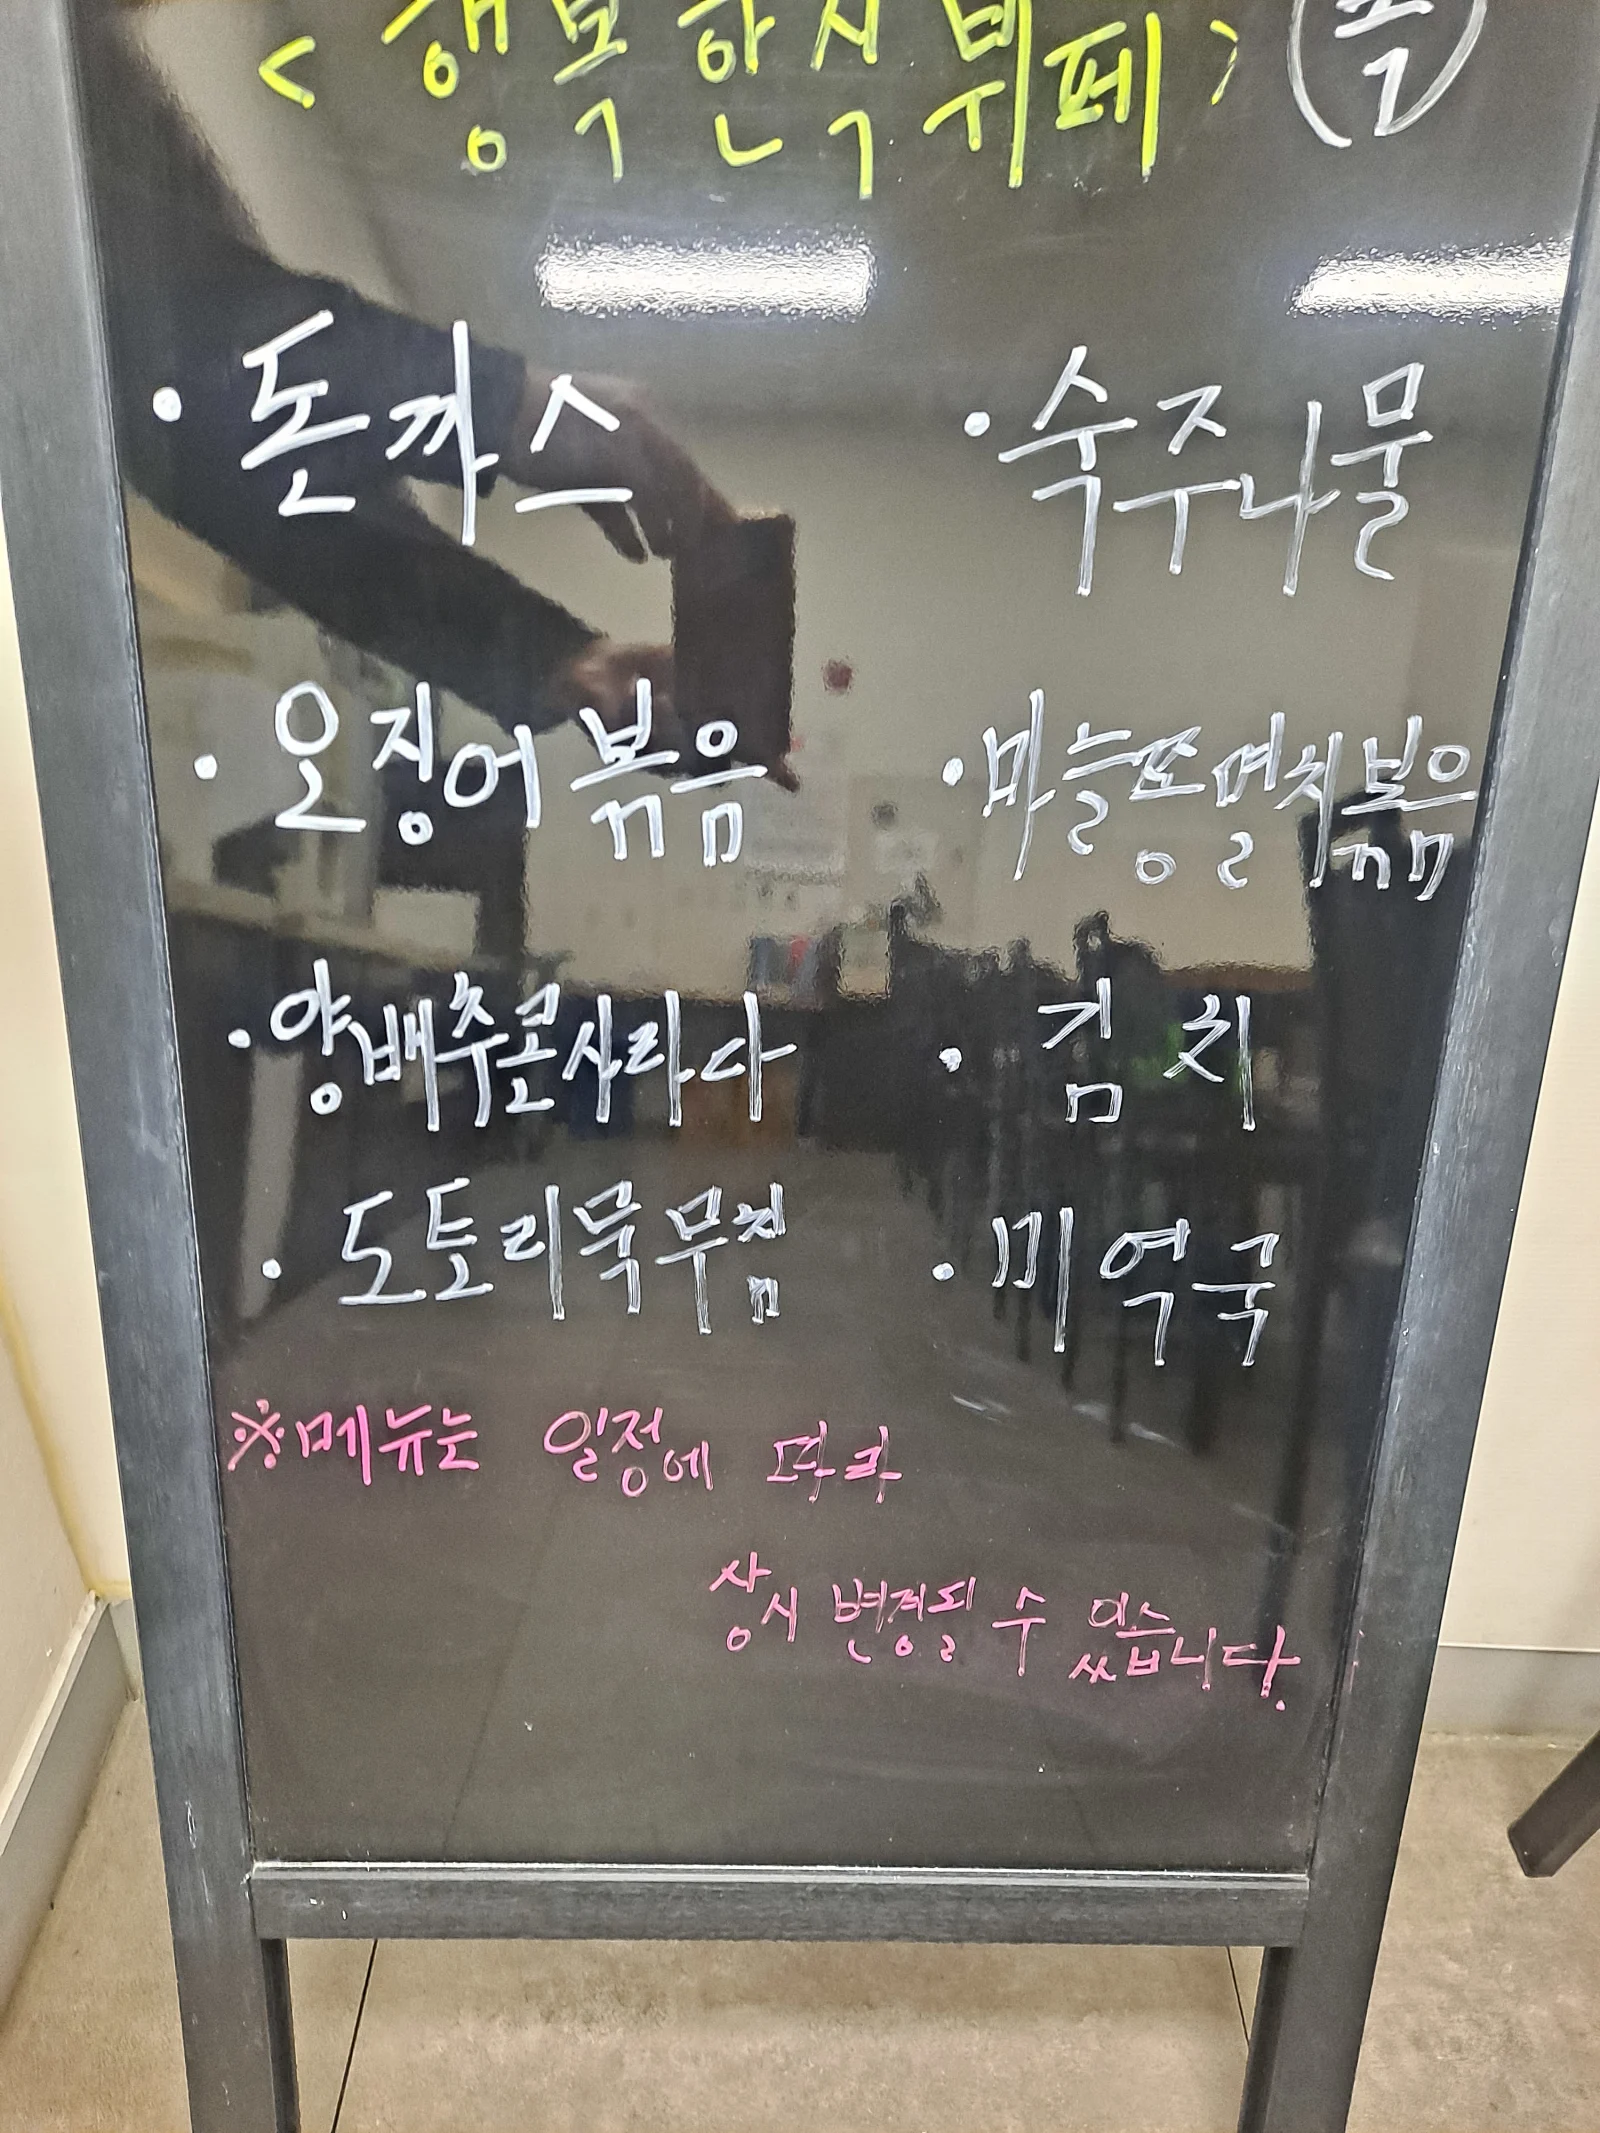 < 행복한식뷔페 >
· 돈까스
· 숙주나물
· 오징어볶음
· 마늘쫑멸치볶음
· 양배추콘사라다
· 김치
· 도토리묵무침
· 미역국
※메뉴는 일정에 따라
상시 변경될 수 있습니다.